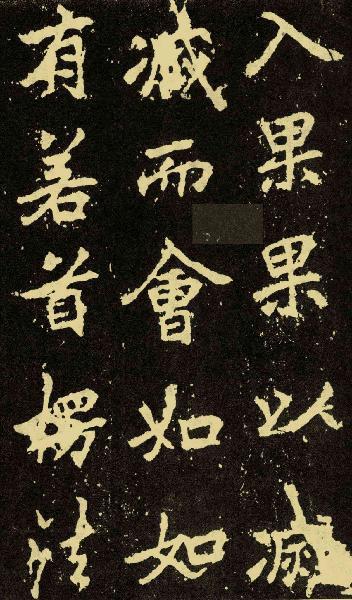 入果果以滅
滅而會如如
有若首楞法